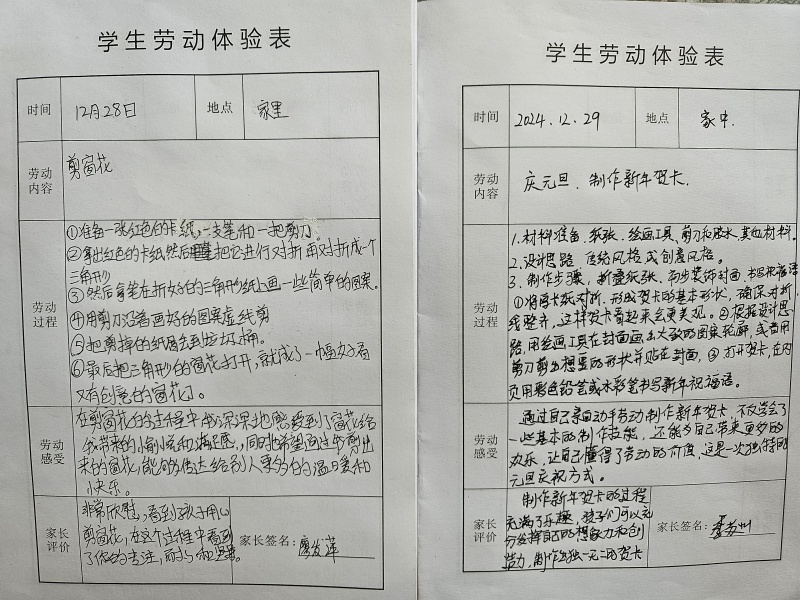 学生劳动体验表
时间 12月28日 地点 家里
劳动内容 剪窗花
劳动过程
①准备一张红色的卡纸、一支笔和一把剪刀。
②拿出红色的卡纸然后把它进行对折再对折成一个
三角形
③然后拿笔在折好的三角形纸上画一些简单的图案。
④用剪刀沿着画好的图案虚线剪
⑤把剪掉的纸屑丢到垃圾桶。
⑥最后把三角形的窗花打开,就成了一幅好看
又有创意的窗花了。
劳动感受
在剪窗花的过程中我深深地感受到了窗花给
我带来的愉悦和满足感,同时也希望通过我剪出
来的窗花,能够传达给别人更多的温暖和
快乐。
家长评价
非常欣慰,看到孩子用心
剪窗花,在这个过程中看到
了你的专注,耐心和
家长签名:廖发萍
学生劳动体验表
时间 2024.12.29 地点 家中.
劳动内容 庆元旦、制作新年贺卡.
劳动过程
1.材料准备.纸张、绘画工具、剪刀和胶水.其他材料.
2.设计思路 传统风格或创意风格。
3.制作步骤,折叠纸张、初步装饰封面 书写祝福语
①将厚卡纸对折,形成贺卡的基本形状,确保对折
线整齐,这样贺卡看起来会更美观.②根据设计思
路,用绘画工具在封面画出大致的图案轮廓,或者用
剪刀剪出想要的形状并贴在封面,③打开贺卡,在内
页用彩色铅笔或水彩笔书写新年祝福语。
劳动感受
通过自己亲自动手劳动制作新年贺卡,不仅学会了
一些基本的制作技能,还能给自己带来更多的
欢乐,让自己懂得了劳动的价值,这是一次独特的
元旦庆祝方式。
家长评价
制作新年贺卡的过程
充满了乐趣,孩子们可以充
分发挥自己的想象力和创
造力,制作出独一无二的贺卡
家长签名: